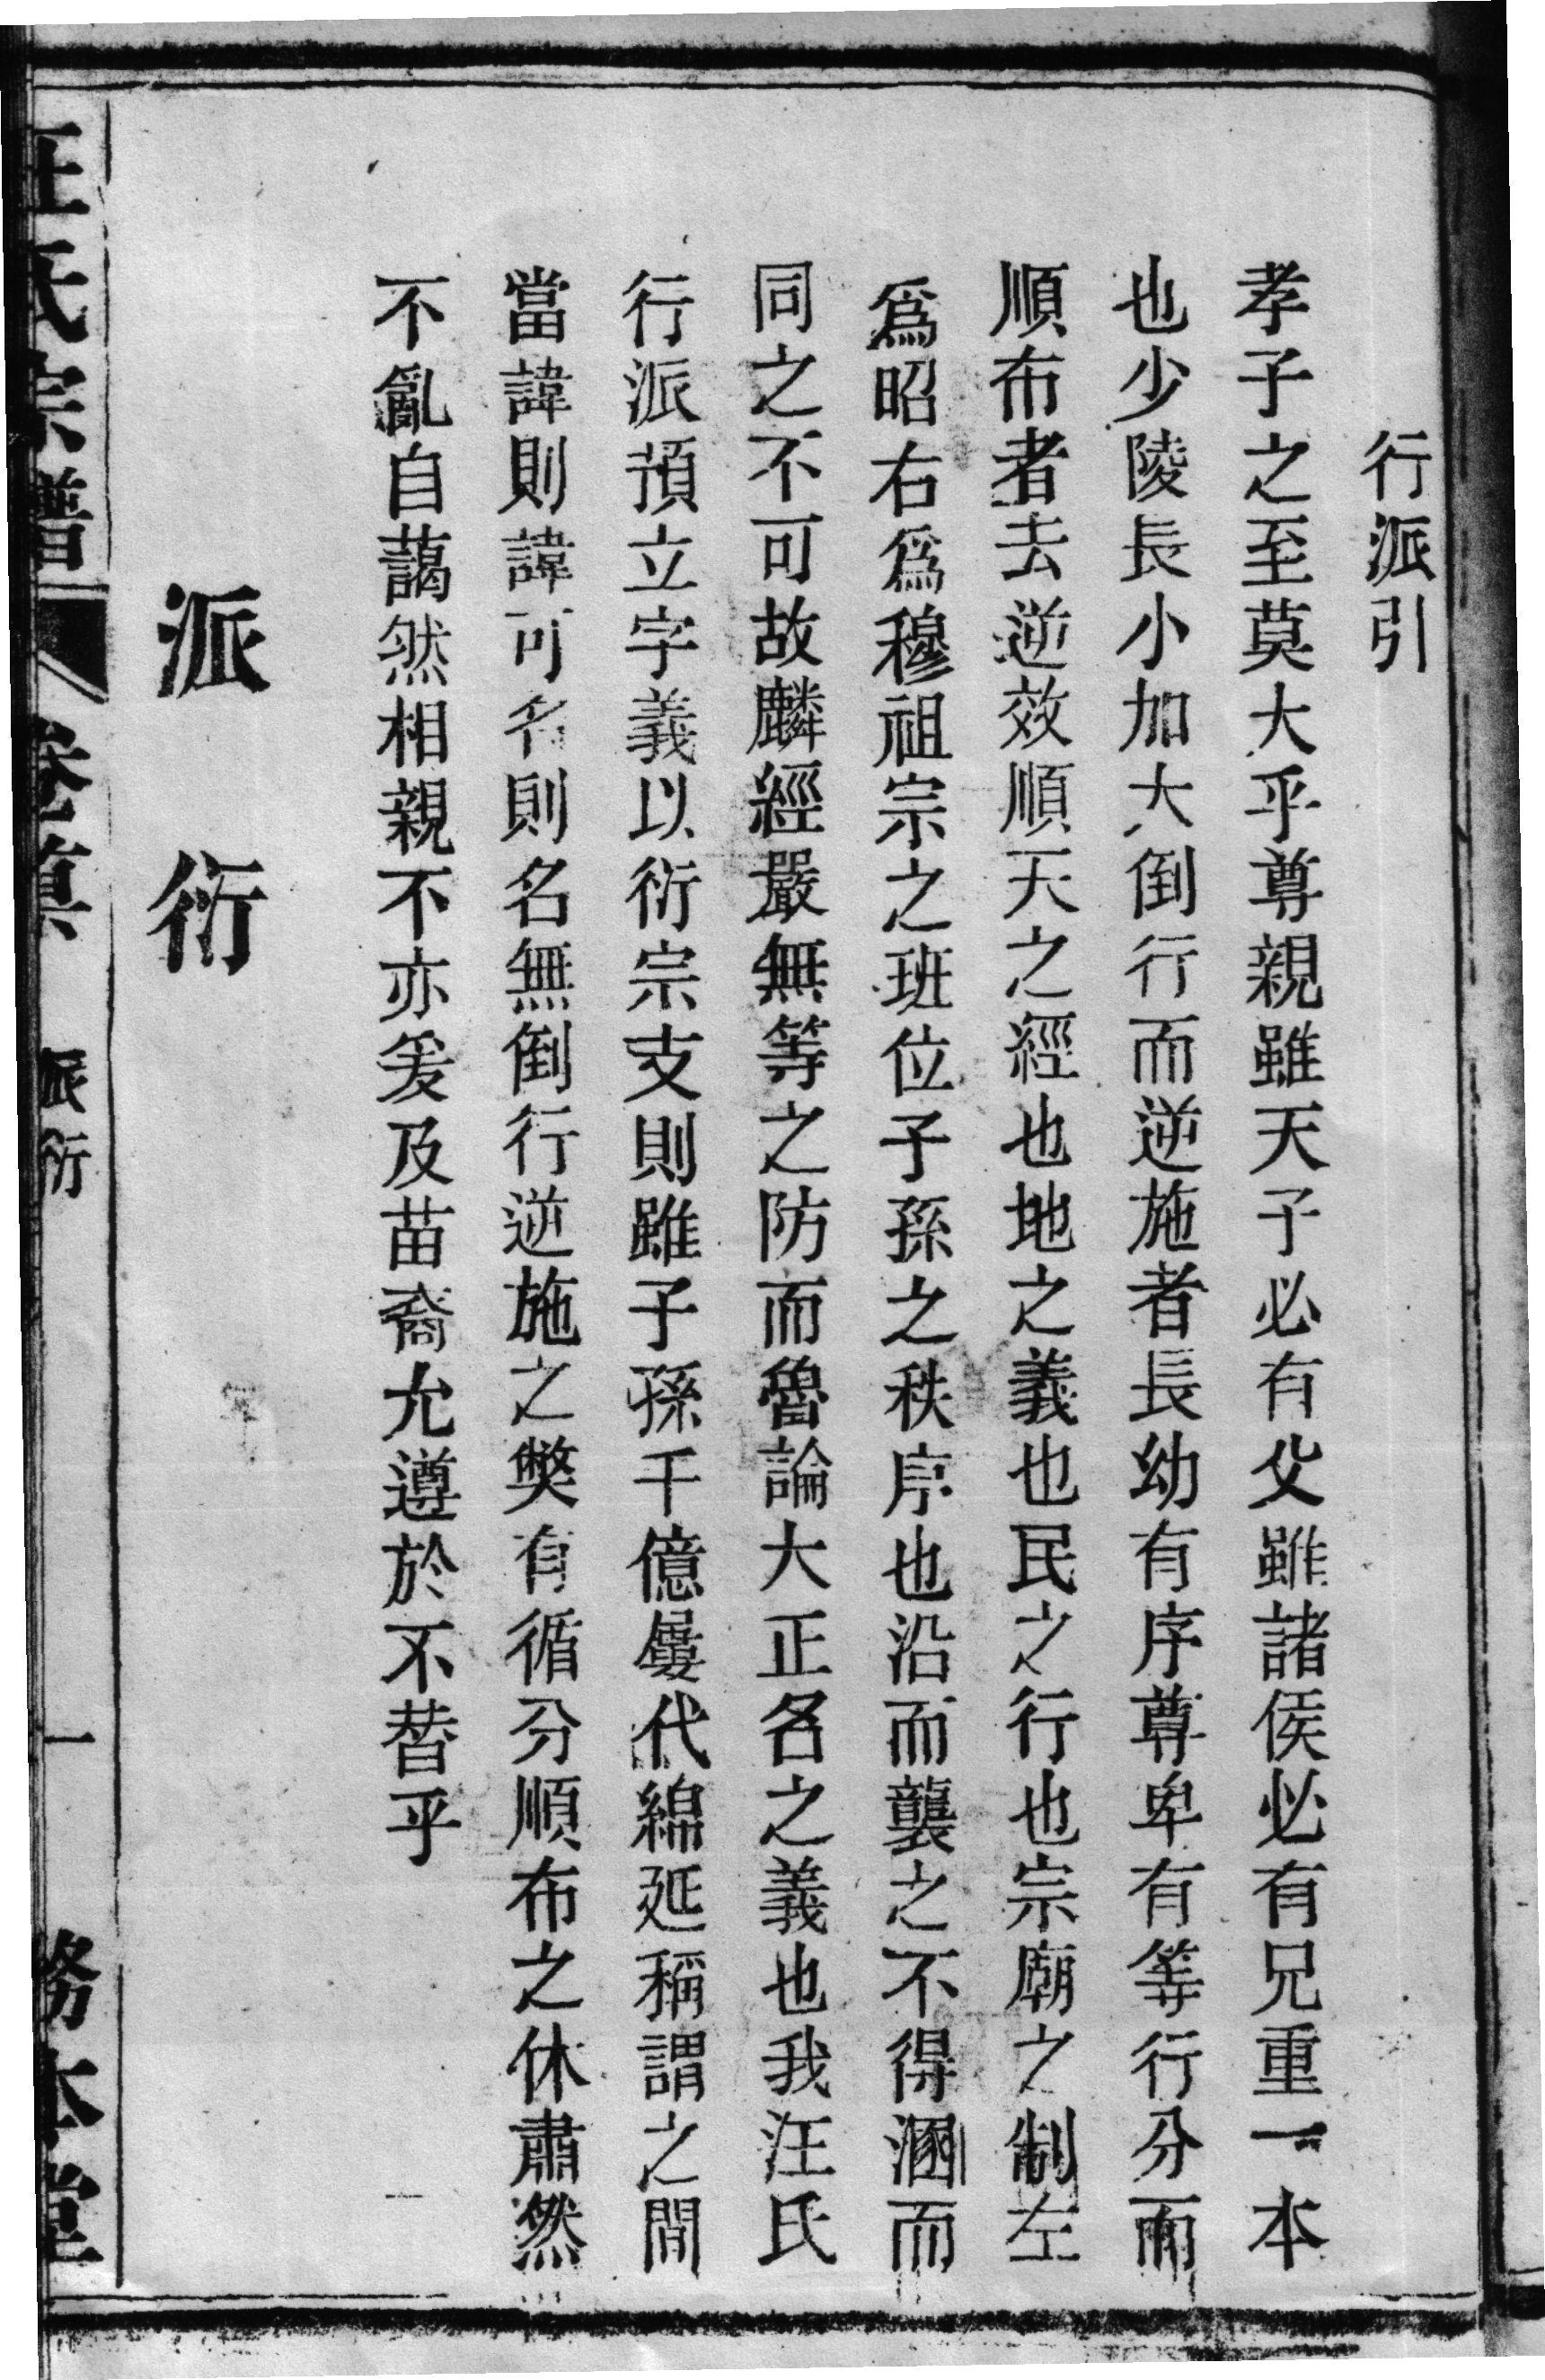 行派引
孝子之至莫大乎尊親雖天子必有父雖諸侯必有兄重一本
也少陵長小加大倒行而逆施者長幼有序尊卑有等行分而
順布者去逆效順天之經也地之義也民之行也宗廟之制左
爲昭右爲穆祖宗之班位子孫之秩序也沿而襲之不得溷而
同之不可故麟經嚴無等之防而魯論大正名之義也我汪氏
行派預立字義以衍宗支則雖子孫千億屢代綿延稱謂之間
當諱則諱可名則名無倒行逆施之獘有循分順布之休肅然
不亂自藹然相親不亦爰及苗裔允遵於不替乎
派衍
汪氏宗譜
卷首
派衍
一
務本堂